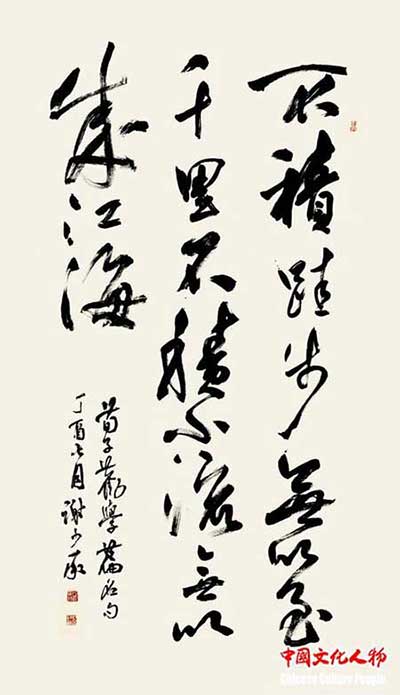 不積跬步無以至
千里不積小流無以
成江海
荀子勸學篇名句
丁酉月謝少承
中國文化人物
Chinese Culture People